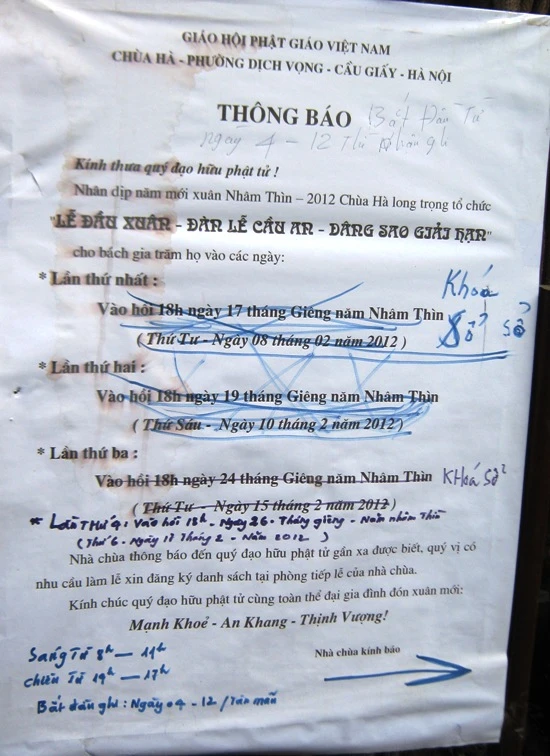 GIÁO HỘI PHẬT GIÁO VIỆT NAM
CHÙA HÀ - PHƯỜNG DỊCH VỌNG - CẦU GIẤY - HÀ NỘI
THÔNG BÁO Bắt Đầu Từ
ngày 4 - 12
Kính thưa quý đạo hữu phật tử !
Nhân dịp năm mới xuân Nhâm Thìn – 2012 Chùa Hà long trọng tổ chức
"LỄ ĐẦU XUÂN - ĐÀN LỄ CẦU AN - DÂNG SAO GIẢI HẠN"
cho bách gia trăm họ vào các ngày:
* Lần thứ nhất :
Khoá
Vào hồi 18h ngày 17 tháng Giêng năm Nhâm Thìn
Sổ sổ
( Thứ Tư - Ngày 08 tháng 02 năm 2012 )
* Lần thứ hai :
Vào hồi 18h ngày 19 tháng Giêng năm Nhâm Thìn
( Thứ Sáu - Ngày 10 tháng 2 năm 2012 )
* Lần thứ ba :
Vào hồi 18h ngày 24 tháng Giêng năm Nhâm Thìn Khoá Sổ
( Thứ Tư - Ngày 15 tháng 2 năm 2012 )
* Lần Thứ 4: Vào hồi 18h - Ngày 26 - Tháng giêng - Năm nhâm Thìn
(Thứ 6 - Ngày 17 Tháng 2 - Năm 2012 )
Nhà chùa thông báo đến quý đạo hữu phật tử gần xa được biết, quý vị có
nhu cầu làm lễ xin đăng ký danh sách tại phòng tiếp lễ của nhà chùa.
Kính chúc quý đạo hữu phật tử cùng toàn thể đại gia đình đón xuân mới:
Mạnh Khoẻ - An Khang - Thịnh Vượng!
Sáng Từ 8h – 11h
Nhà chùa kính báo
Chiều Từ 14h – 17h
Bắt đầu ghi : Ngày 04 - 12 /